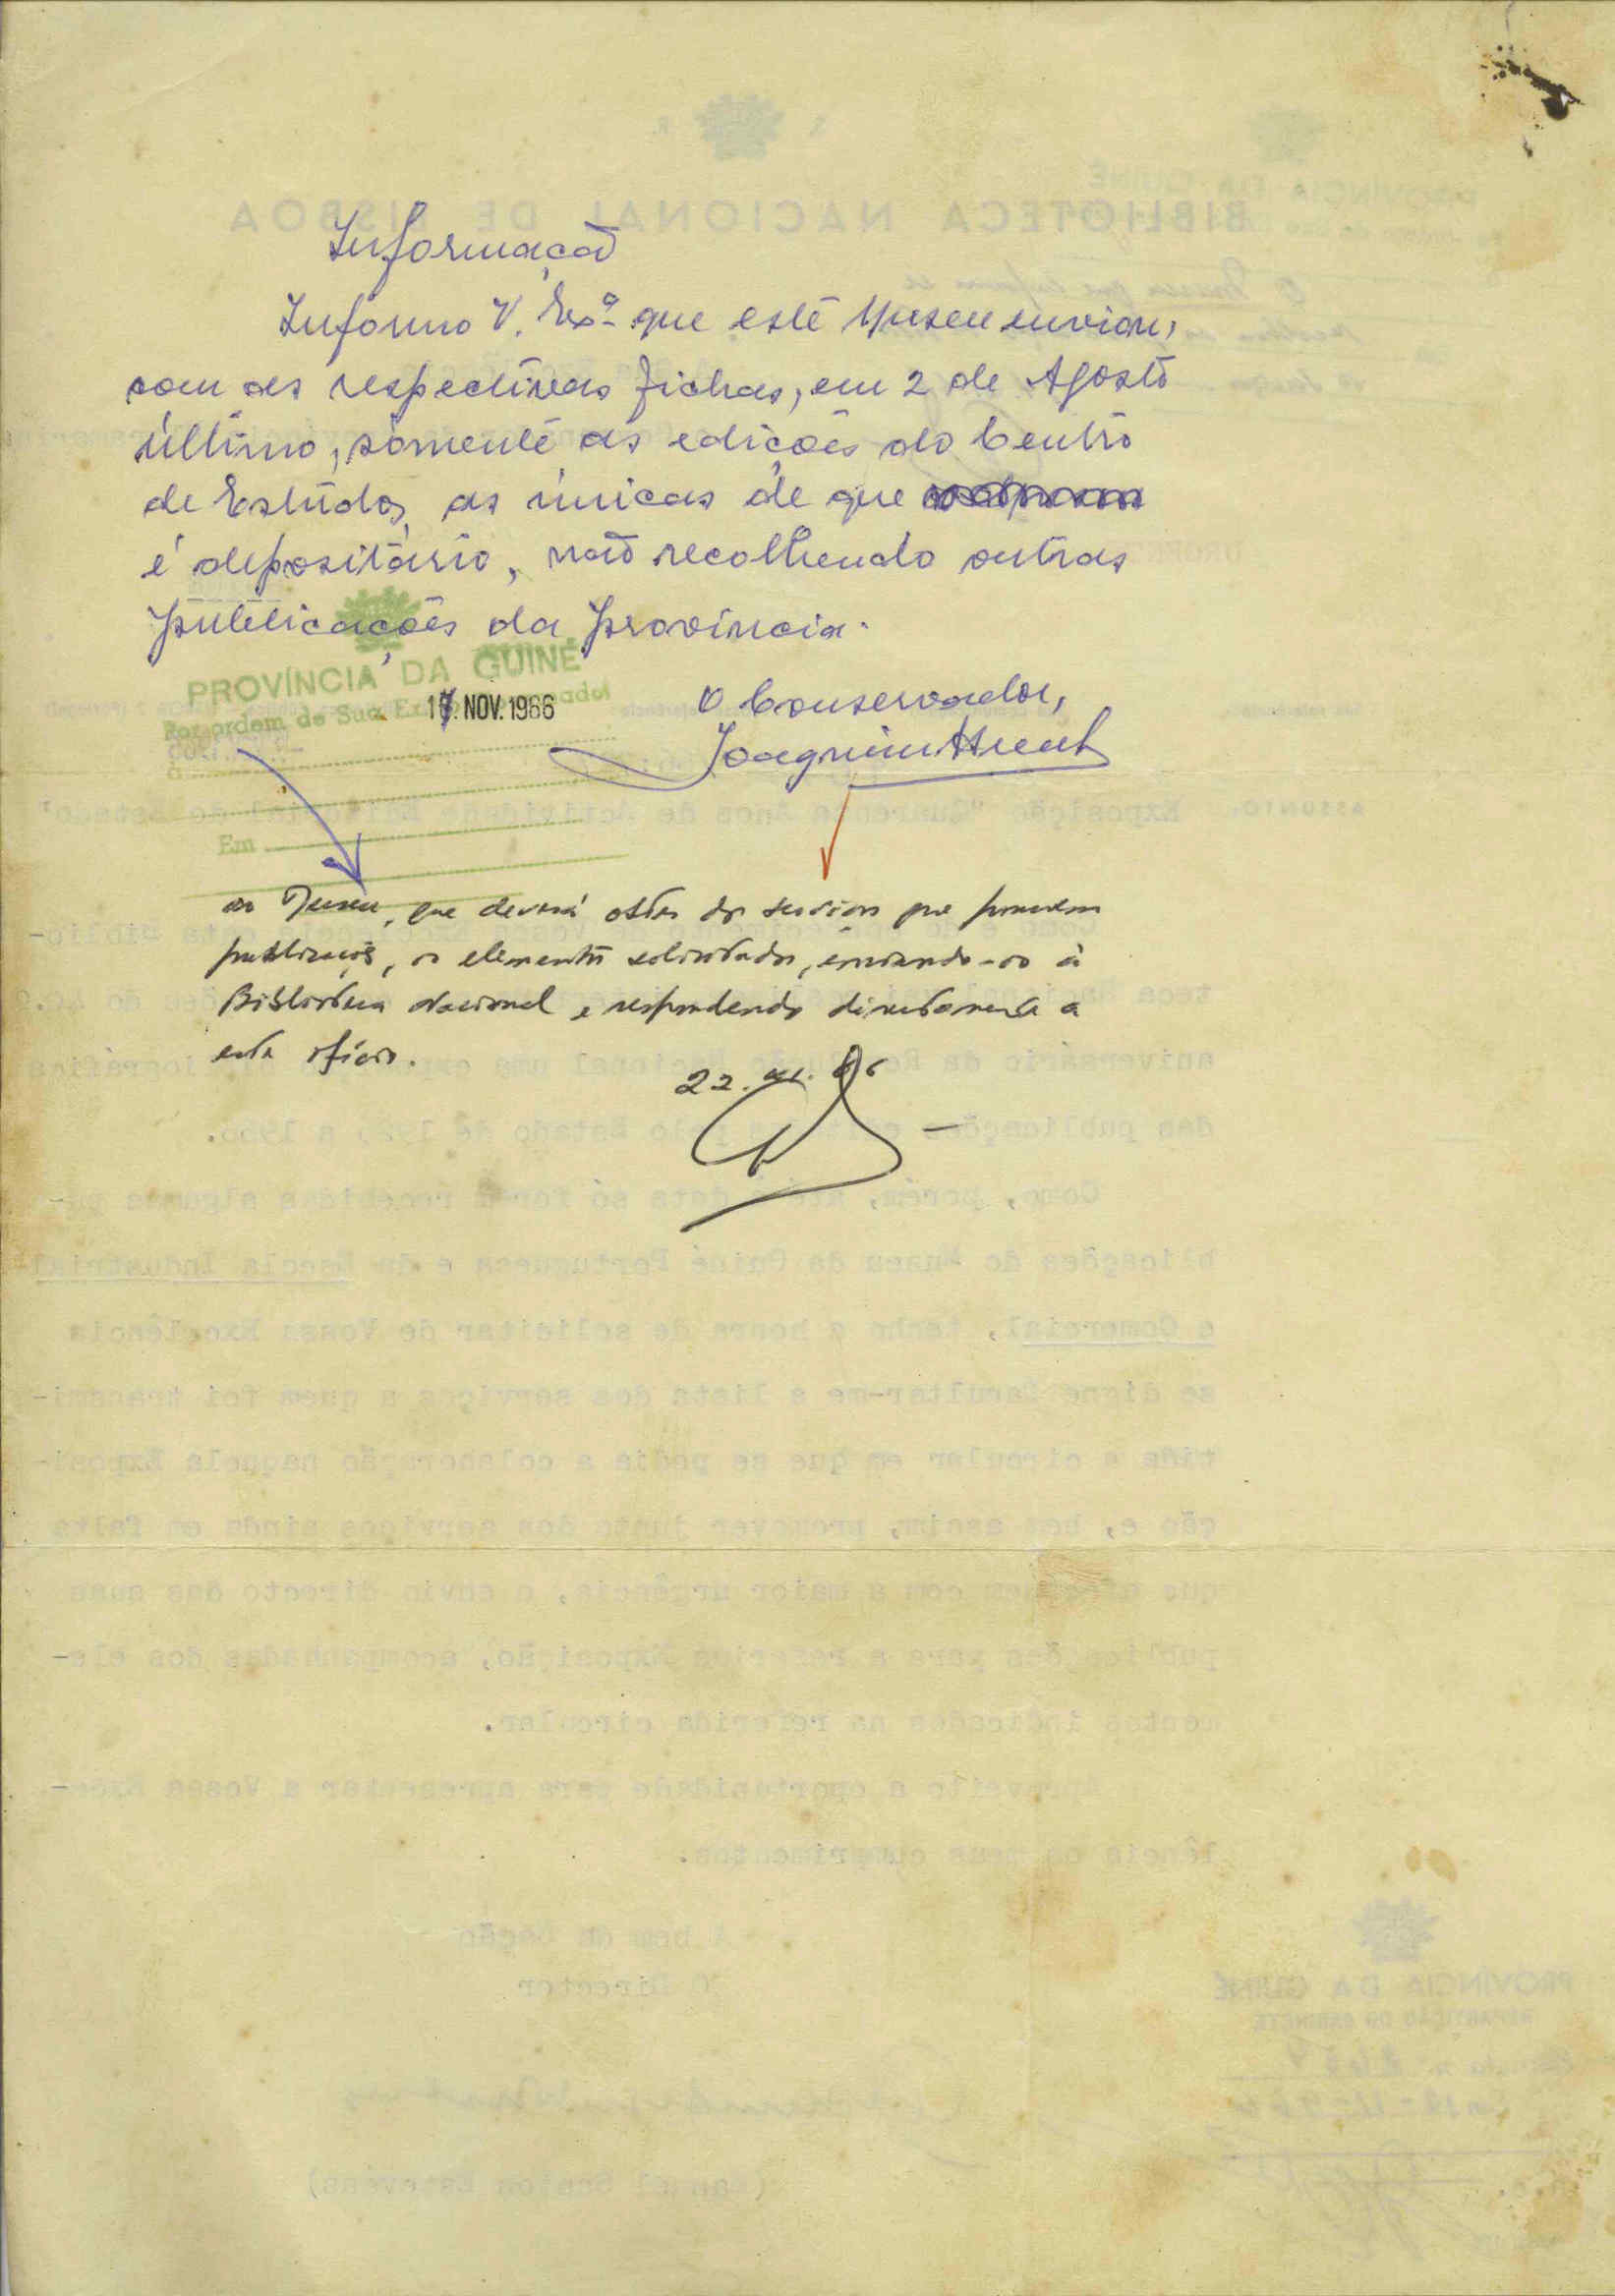 Informação
Informo V. Exª que este Museu enviou,
com as respectivas fichas, em 2 de Agosto
último, sòmente as edições do Centro
de Estudos, as únicas de que
é depositário, não recolhendo outras
publicações da província.
PROVÍNCIA DA GUINÉ
Por ordem de Sua Ex.
17. NOV. 1966
O Conservador,
Joaquim
Em
ao Museu, que deverá obter dos serviços que possuem
publicações, os elementos solicitados, enviando-os à
Biblioteca Nacional e respondendo directamente a
este ofício.
22. 66
BIBLIOTECA NACIONAL DE LISBOA
ASSUNTO: Exposição "Quarenta Anos de Actividade Editorial do Estado"
aniversário da Revolução Nacional uma
das publicações pelo Estado de 1926 a 1966.
Como, porém, até data só foram recebidas algumas pu-
blicações do Museu da Guiné Portuguesa e da Escola Industrial
e Comercial, tenho a honra de solicitar de Vossa Excelência
se digne facultar-me a lista dos serviços a quem foi transmi-
tida a circular em que se pedia a colaboração naquela Exposi-
ção e, bem assim, promover junto dos serviços ainda em falta
que com a maior urgência, o envio directo das suas
publicações para a referida Exposição, acompanhadas dos ele-
mentos indicados na referida circular.
Aproveito a oportunidade para apresentar a Vossa Exce-
lência os meus cumprimentos.
A bem da Nação
O Director
PROVÍNCIA DA GUINÉ
REPARTIÇÃO DO GABINETE